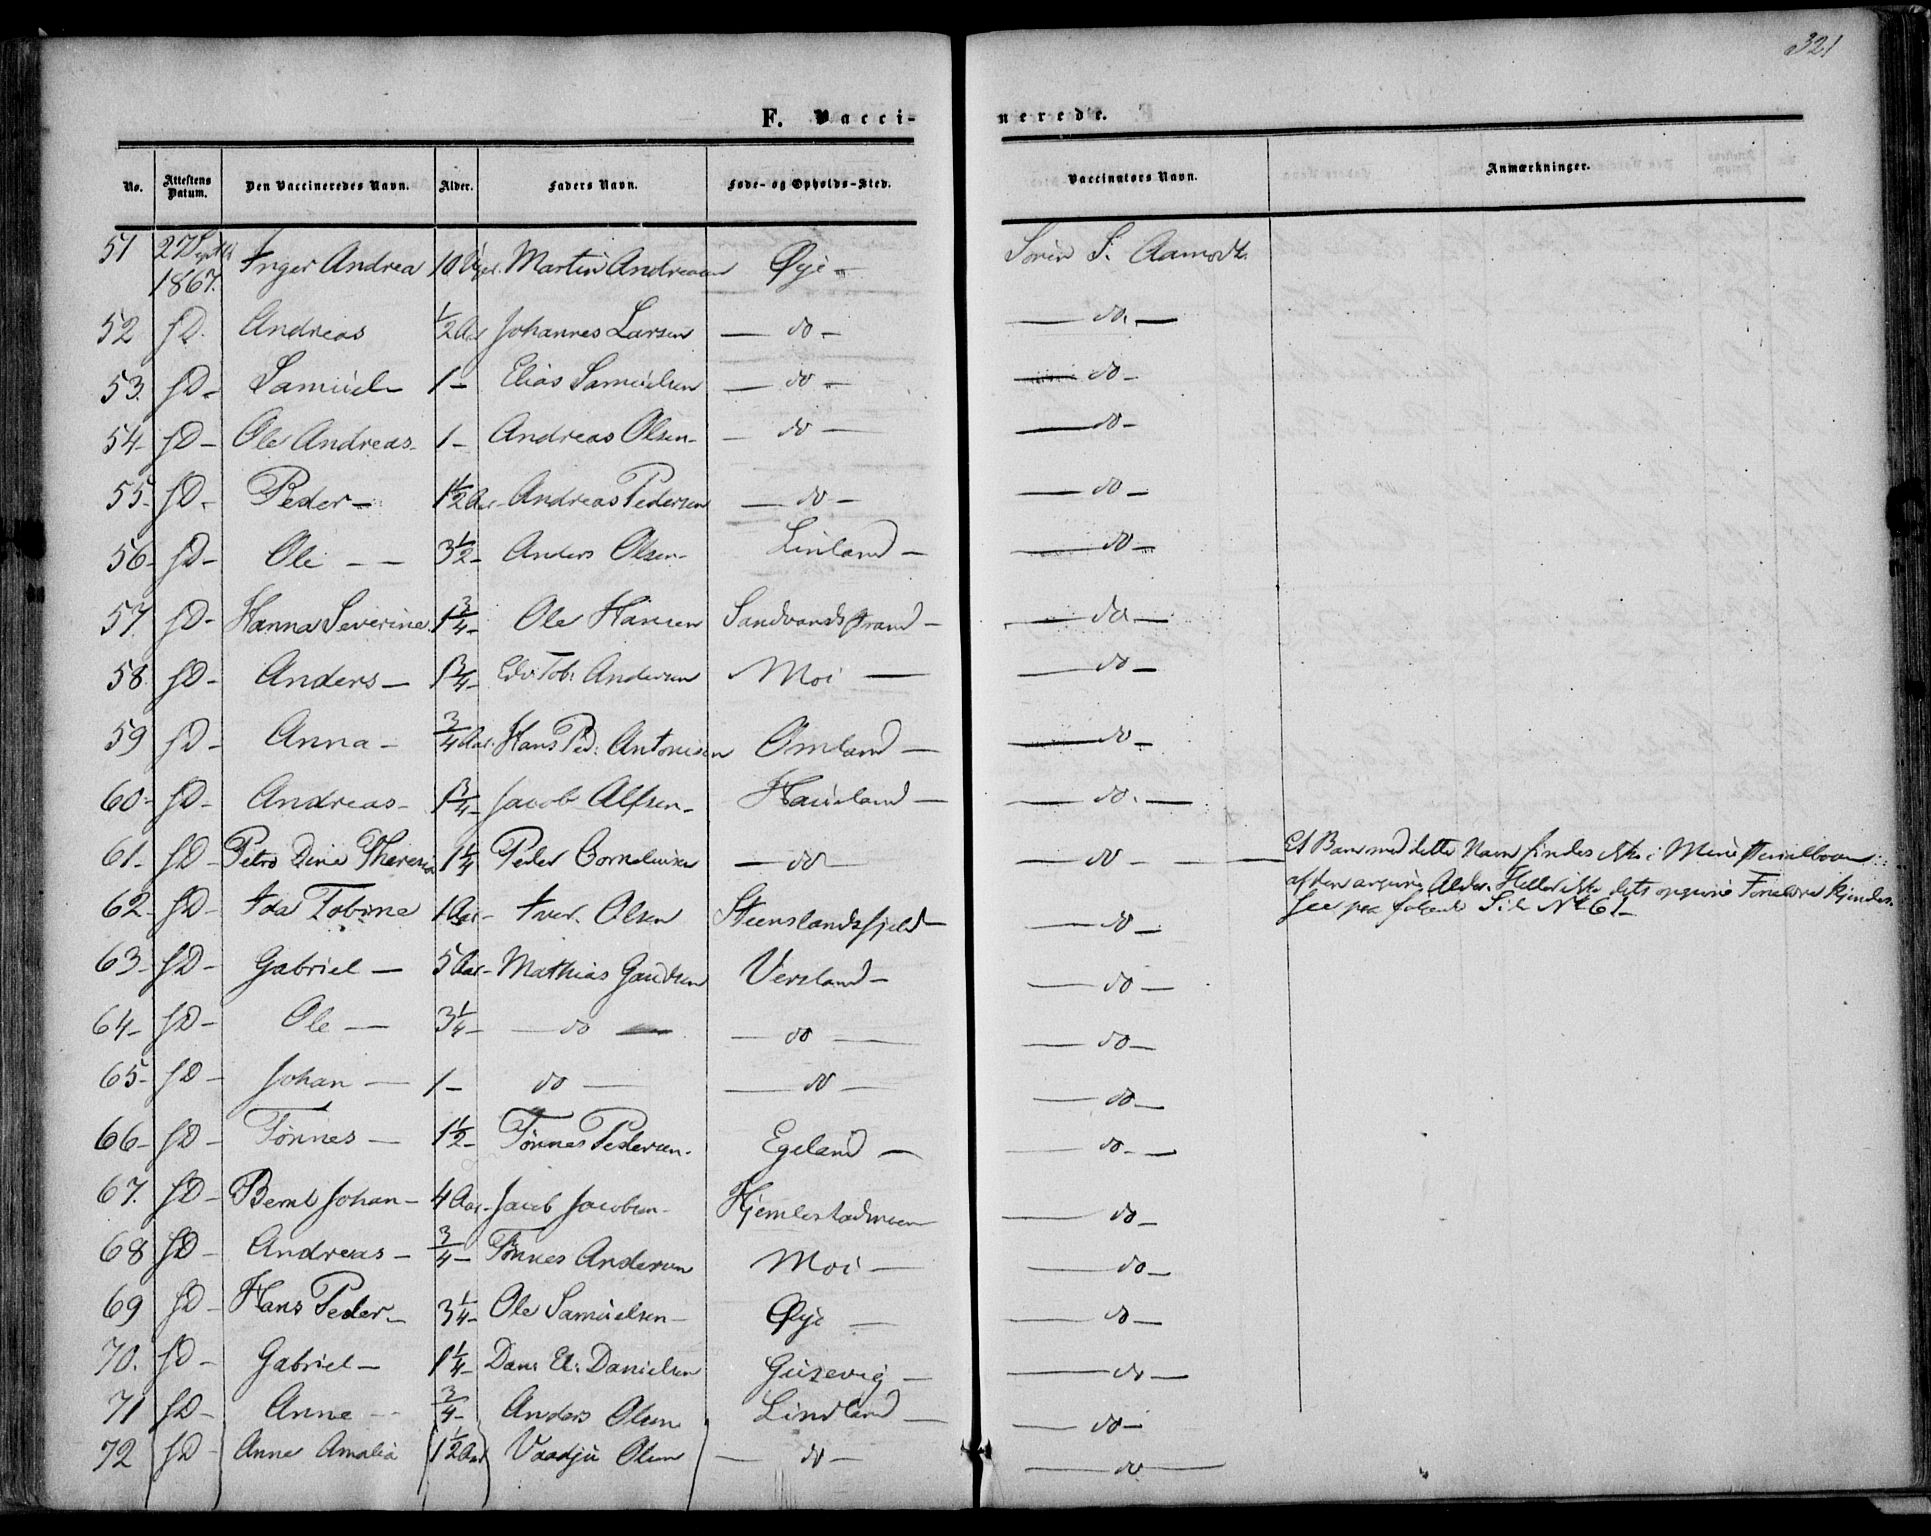 321
F. Vacci-nerede.
No. Attestens Datum. Den Vaccineredes Navn. Alder. Faders Navn. Føde- og Opholds-Sted. Vaccinators Navn. Anmærkninger.
51 27 Septbr 1867. Inger Andrea 10 Uger. Martin Andreasen Øye - Sören S. Aamodt
52 sD. Andreas ½ Aar Johannes Larsen — do — — do. —
53. sD - Samuel - 1 - Elias Samuelsen — do — — do -
54 - sD - Ole Andreas - 1 - Andreas Olsen - — do — — do -
55 - sD - Peder - 1½ Aar - Andreas Pedersen — do — — do —
56 - sD - Ole - - 3½ - Anders Olsen - Linland — — do —
57 sD - Hanna Severine 1¾ - Ole Hansen Sandvandsstrand — — do —
58 sD - Anders - 1¾ - Edv Tob: Andersen Moi — — do —
59 sD - Anna - ¾ Aar. Hans Ped: Antonisen Omland — — do —
60 - sD - Andreas - 1¾ - Jacob Alfsen - Haueland — — do. —
61 - sD - Petra Dine Theresia 1¼ Peder Cornelius — do — — do — Et Barn med dette Navn findes ikke i Ministerialbogen
af den angivne Alder. Heller ikke dets angivne Forældre kjendes.
See paa følgende Side No 61 -
62 - sD - Ida Tobine 1 Aar - Iver Olsen Steenslandsfjeld — — do —
63 - sD - Gabriel — 5 Aar - Mathias Gaudsen Versland — — do —
64 - sD - Ole — 3¼ - — do — — do — — do —
65 - sD - Johan — 1 - do — — do — — do —
66 - sD - Tönnes — 1½ - Tönnes Pedersen. Egeland — — do. —
67. sD - Bernt Johan - 4 Aar - Jacob Jacobsen - Hjemlestadmoen — do —
68 sD - Andreas - ¾ - Tönnes Andersen Moi — — do —
69 sD - Hans Peder - 3¼ - Ole Samuelsen - Øye — — do —
70. sD - Gabriel - 1¼ - Dan: El: Danielsen Gusevig — — do —
71 sD - Anne - - ¾ - Anders Olsen Lindland — — do —
72 sD - Anne Amalia 1½ Aar Olsen — do — — do —